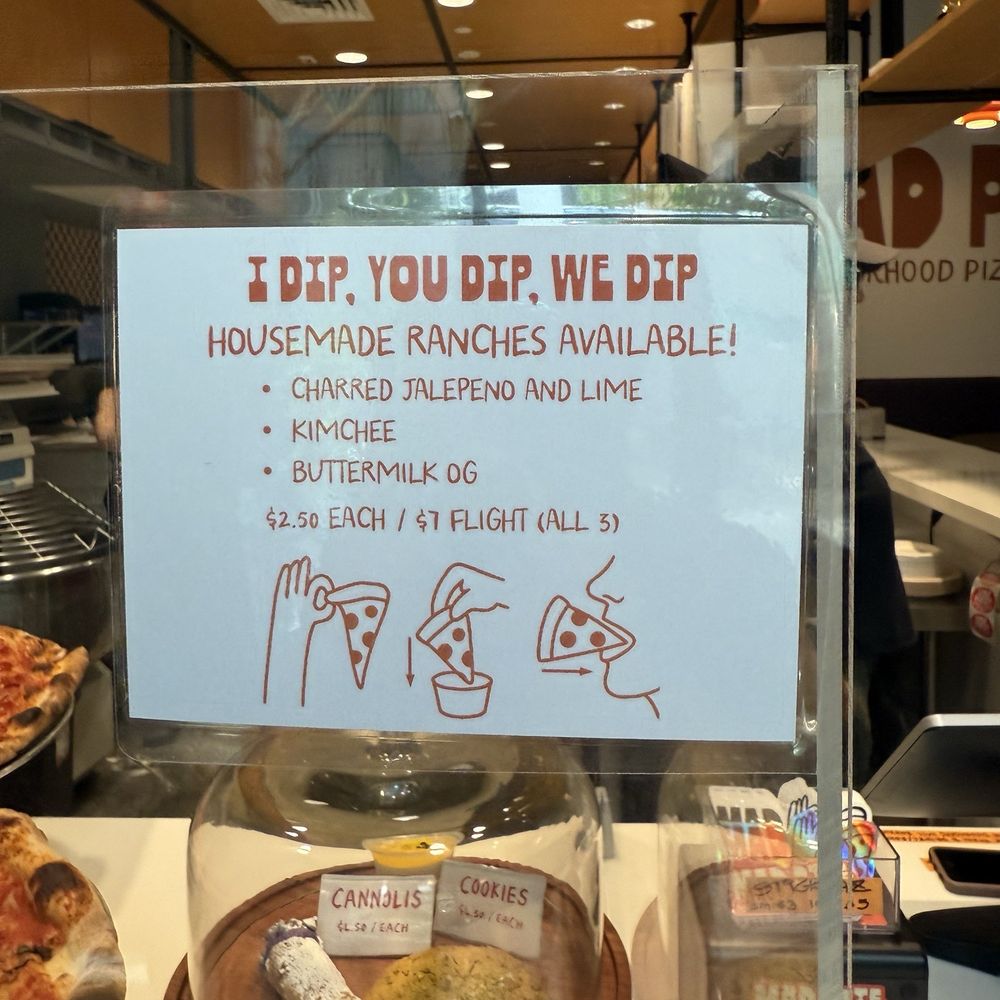 I DIP, YOU DIP, WE DIP
HOUSEMADE RANCHES AVAILABLE!
• CHARRED JALEPENO AND LIME
• KIMCHEE
• BUTTERMILK OG
$2.50 EACH / $7 FLIGHT (ALL 3)
AD P
RHOOD PIZ
CANNOLIS
$4.50 / EACH
COOKIES
$4.50 / EACH